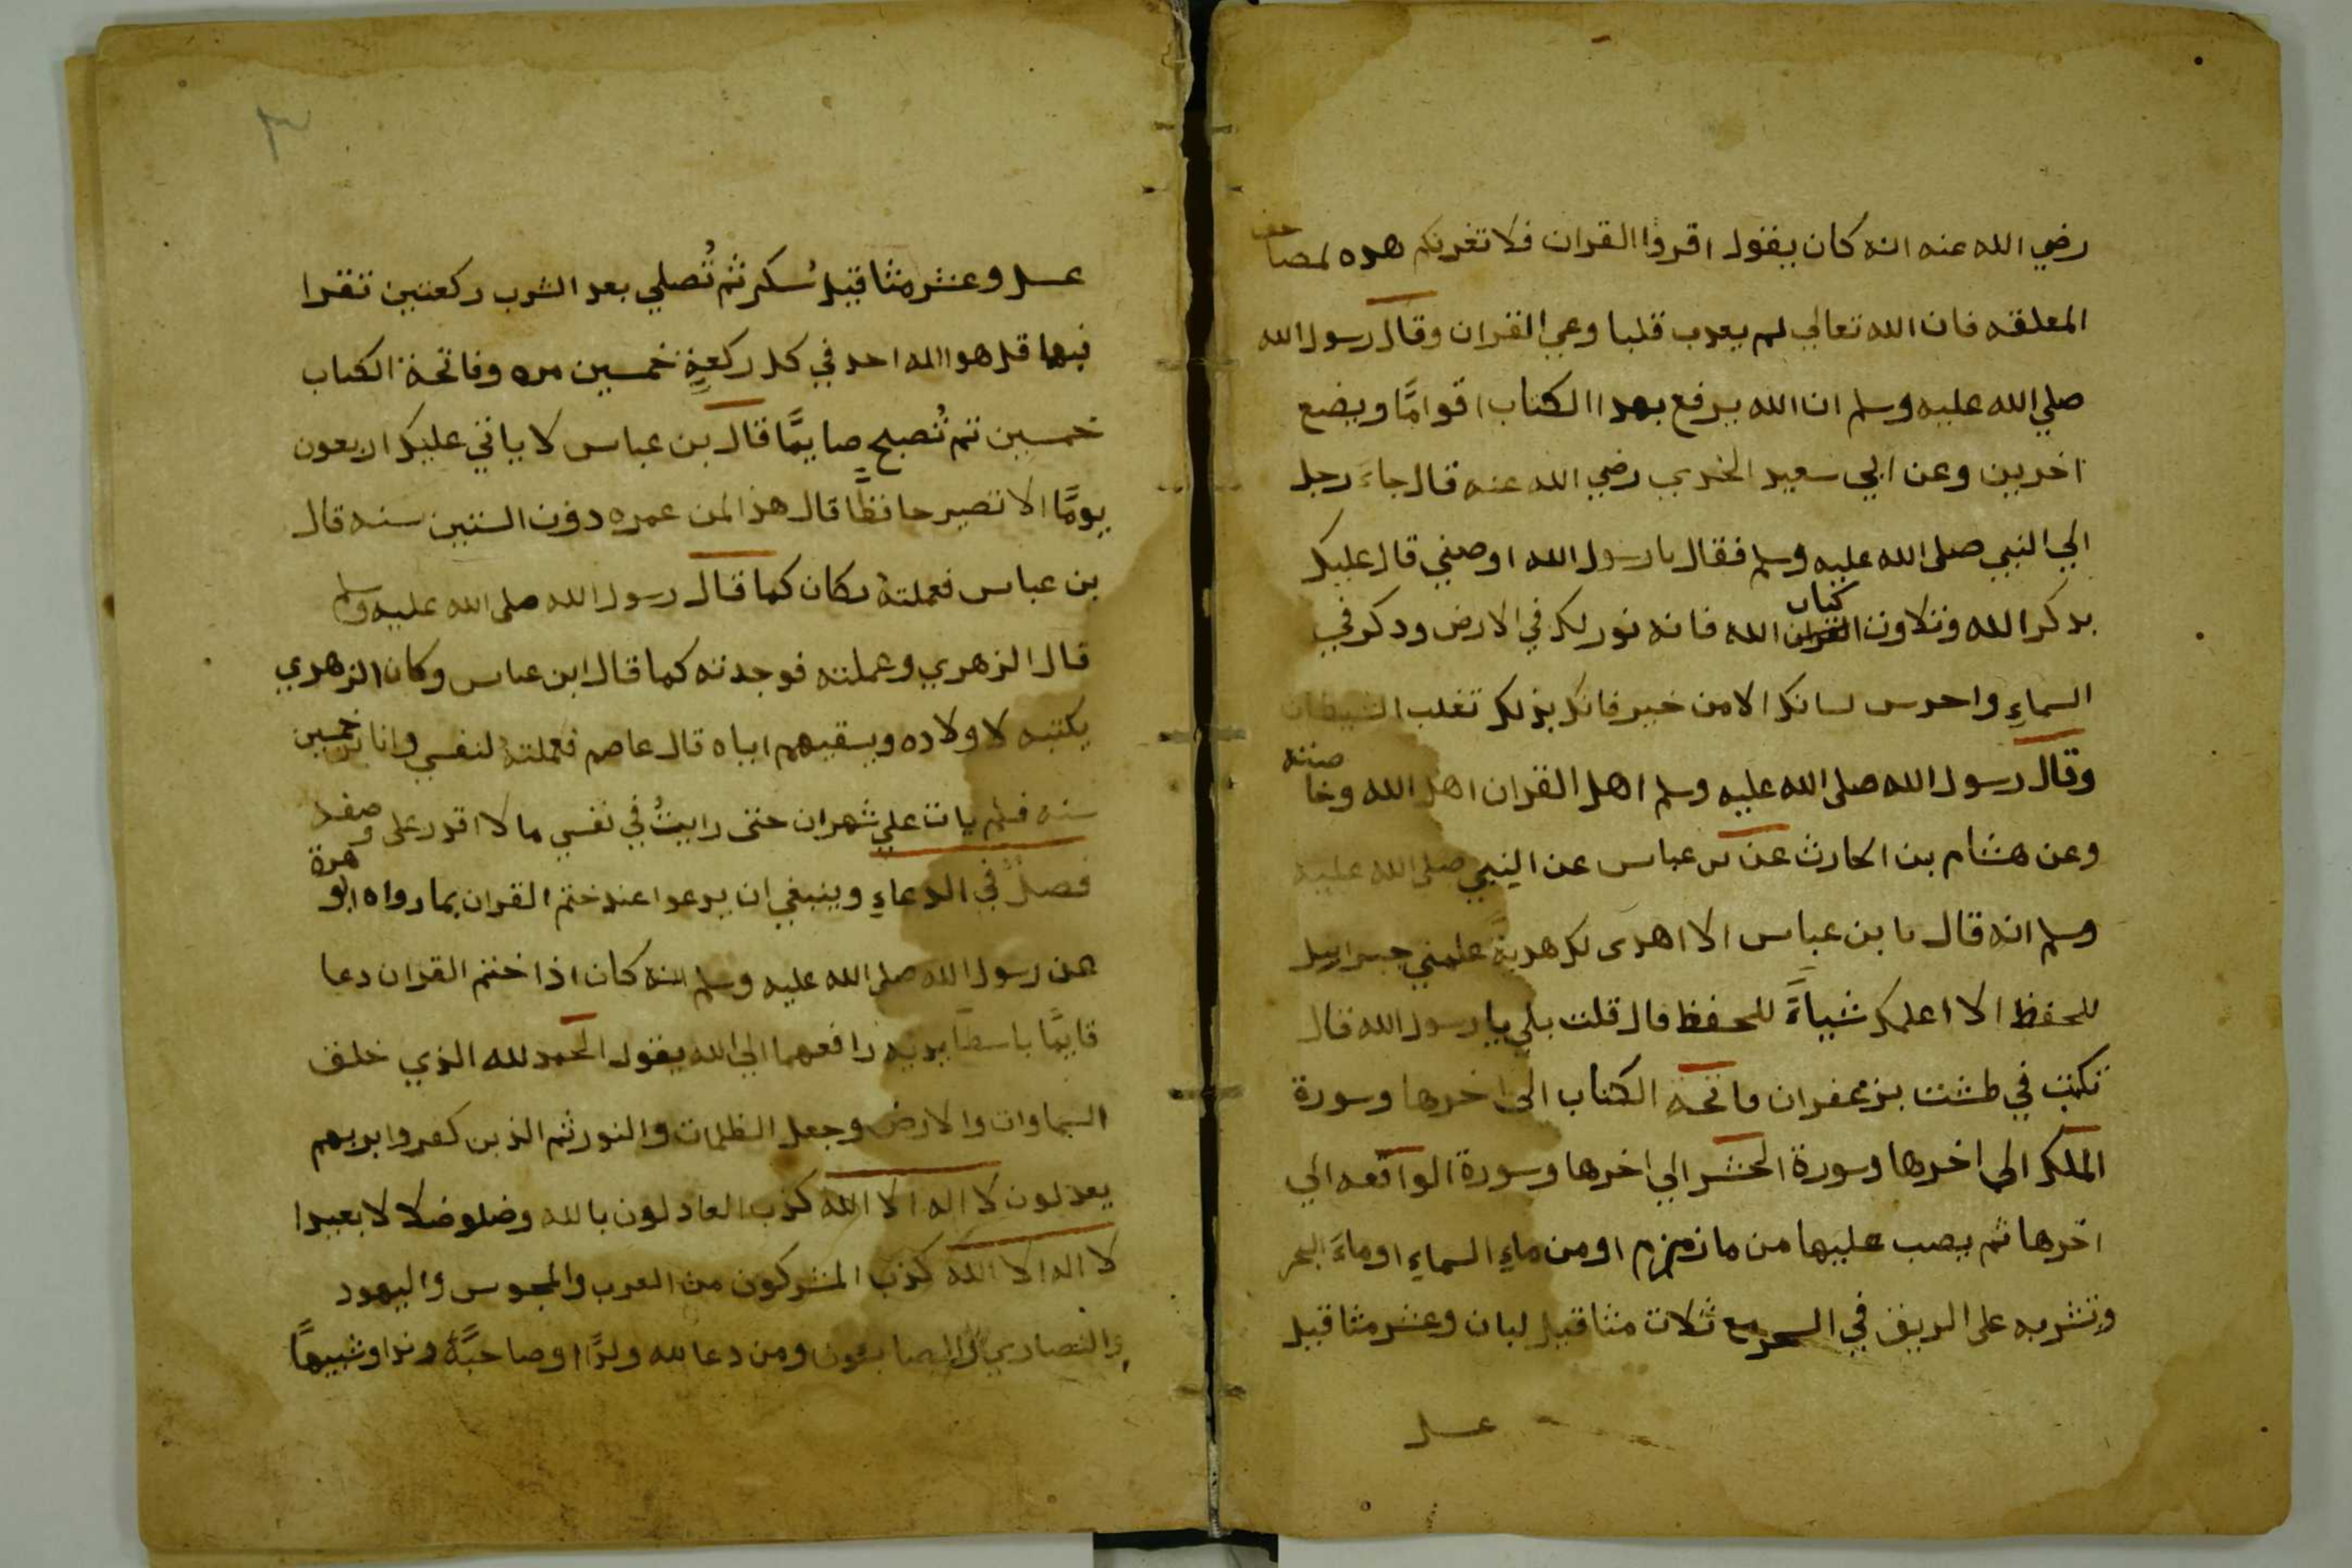 رضي الله عنه انه كان يقول اقروا القران فلا تغرنكم هده لمصاحف
المعلقه فان الله تعالي لم يعدب قلبا وعي القران وقال رسول الله
صلي الله عليه وسلم ان الله يرفع بهدا الكتاب اقوامًا ويضع
اخرين وعن ابي سعيد الخدري رضي الله عنه قال جاءَ رجل
الي النبي صلى الله عليه وسلم فقال يا رسول الله اوصني قال عليك
بدكر الله وتلاوت القران كتاب الله فانه نور لك في الارض ودكر في
السماءِ واحرس لسانك الا من خير فانك بذلك تغلب الشيطان
وقال رسول الله صلى الله عليه وسلم اهل القران اهل الله وخاصته
وعن هشام بن الحارث عن بن عباس عن النبي صلى الله عليه
وسلم انه قال يا بن عباس الا اهدى لك هديةً علمني جبراييل
للحفظ الا اعلمك شياءً للحفظ قال قلت بلي يا رسول الله قال
تكتب في طشت بزعفران فاتحة الكتاب الى اخرها وسورة
الملك الى اخرها وسورة الحشر الي اخرها وسورة الواقعه الي
اخرها ثم يصب عليها من ما زمزم او من ماءِ السماءِ او ماءَ البحر
وتشربه على الريق في السحر مع ثلاث مثاقيل لبان وعشر مثاقيل
عسل
٣
عسل وعشر مثاقيل سُكر ثم تُصلي بعد الشرب ركعتين تقرا
فيها قل هو الله احد في كل ركعةٍ خمسين مره وفاتحة الكتاب
خمسين تم تُصبح صايمًا قال بن عباس لا ياتي عليك اربعون
يومًا الا تصير حافظًا قال هذا لمن عمره دون الستين سنه قال
بن عباس فعملتهُ فكان كما قال رسول الله صلى الله عليه وسلم
قال الزهري وعملته فوجدته كما قال ابن عباس وكان الزهري
يكتبه لاولاده ويسقيهم اياه قال عاصم فعملتهُ لنفسي وانا بن خمسين
سنه فلم يات علي شهران حتى رايتُ في نفسي ما لا اقدر على وصفه
فصلٌ في الدعاءِ وينبغي ان يدعوا عند ختم القران بما رواه ابو هرة
عن رسول الله صلى الله عليه وسلم انه كان اذا ختم القران دعا
قايمًا باسطًا يديه رافعهما الي الله يقول الحمد لله الذي خلق
السماوات والارض وجعل الظلمات والنور ثم الذين كفروا بربهم
يعدلون لا اله الا الله كذب العادلون بالله وضلو ضلالا بعيدا
لا اله الا الله كذب المشركون من العرب والمجوس واليهود
والنصاري والصابون ومن دعا لله ولدًا او صاحبةً وندا وشبيهًا